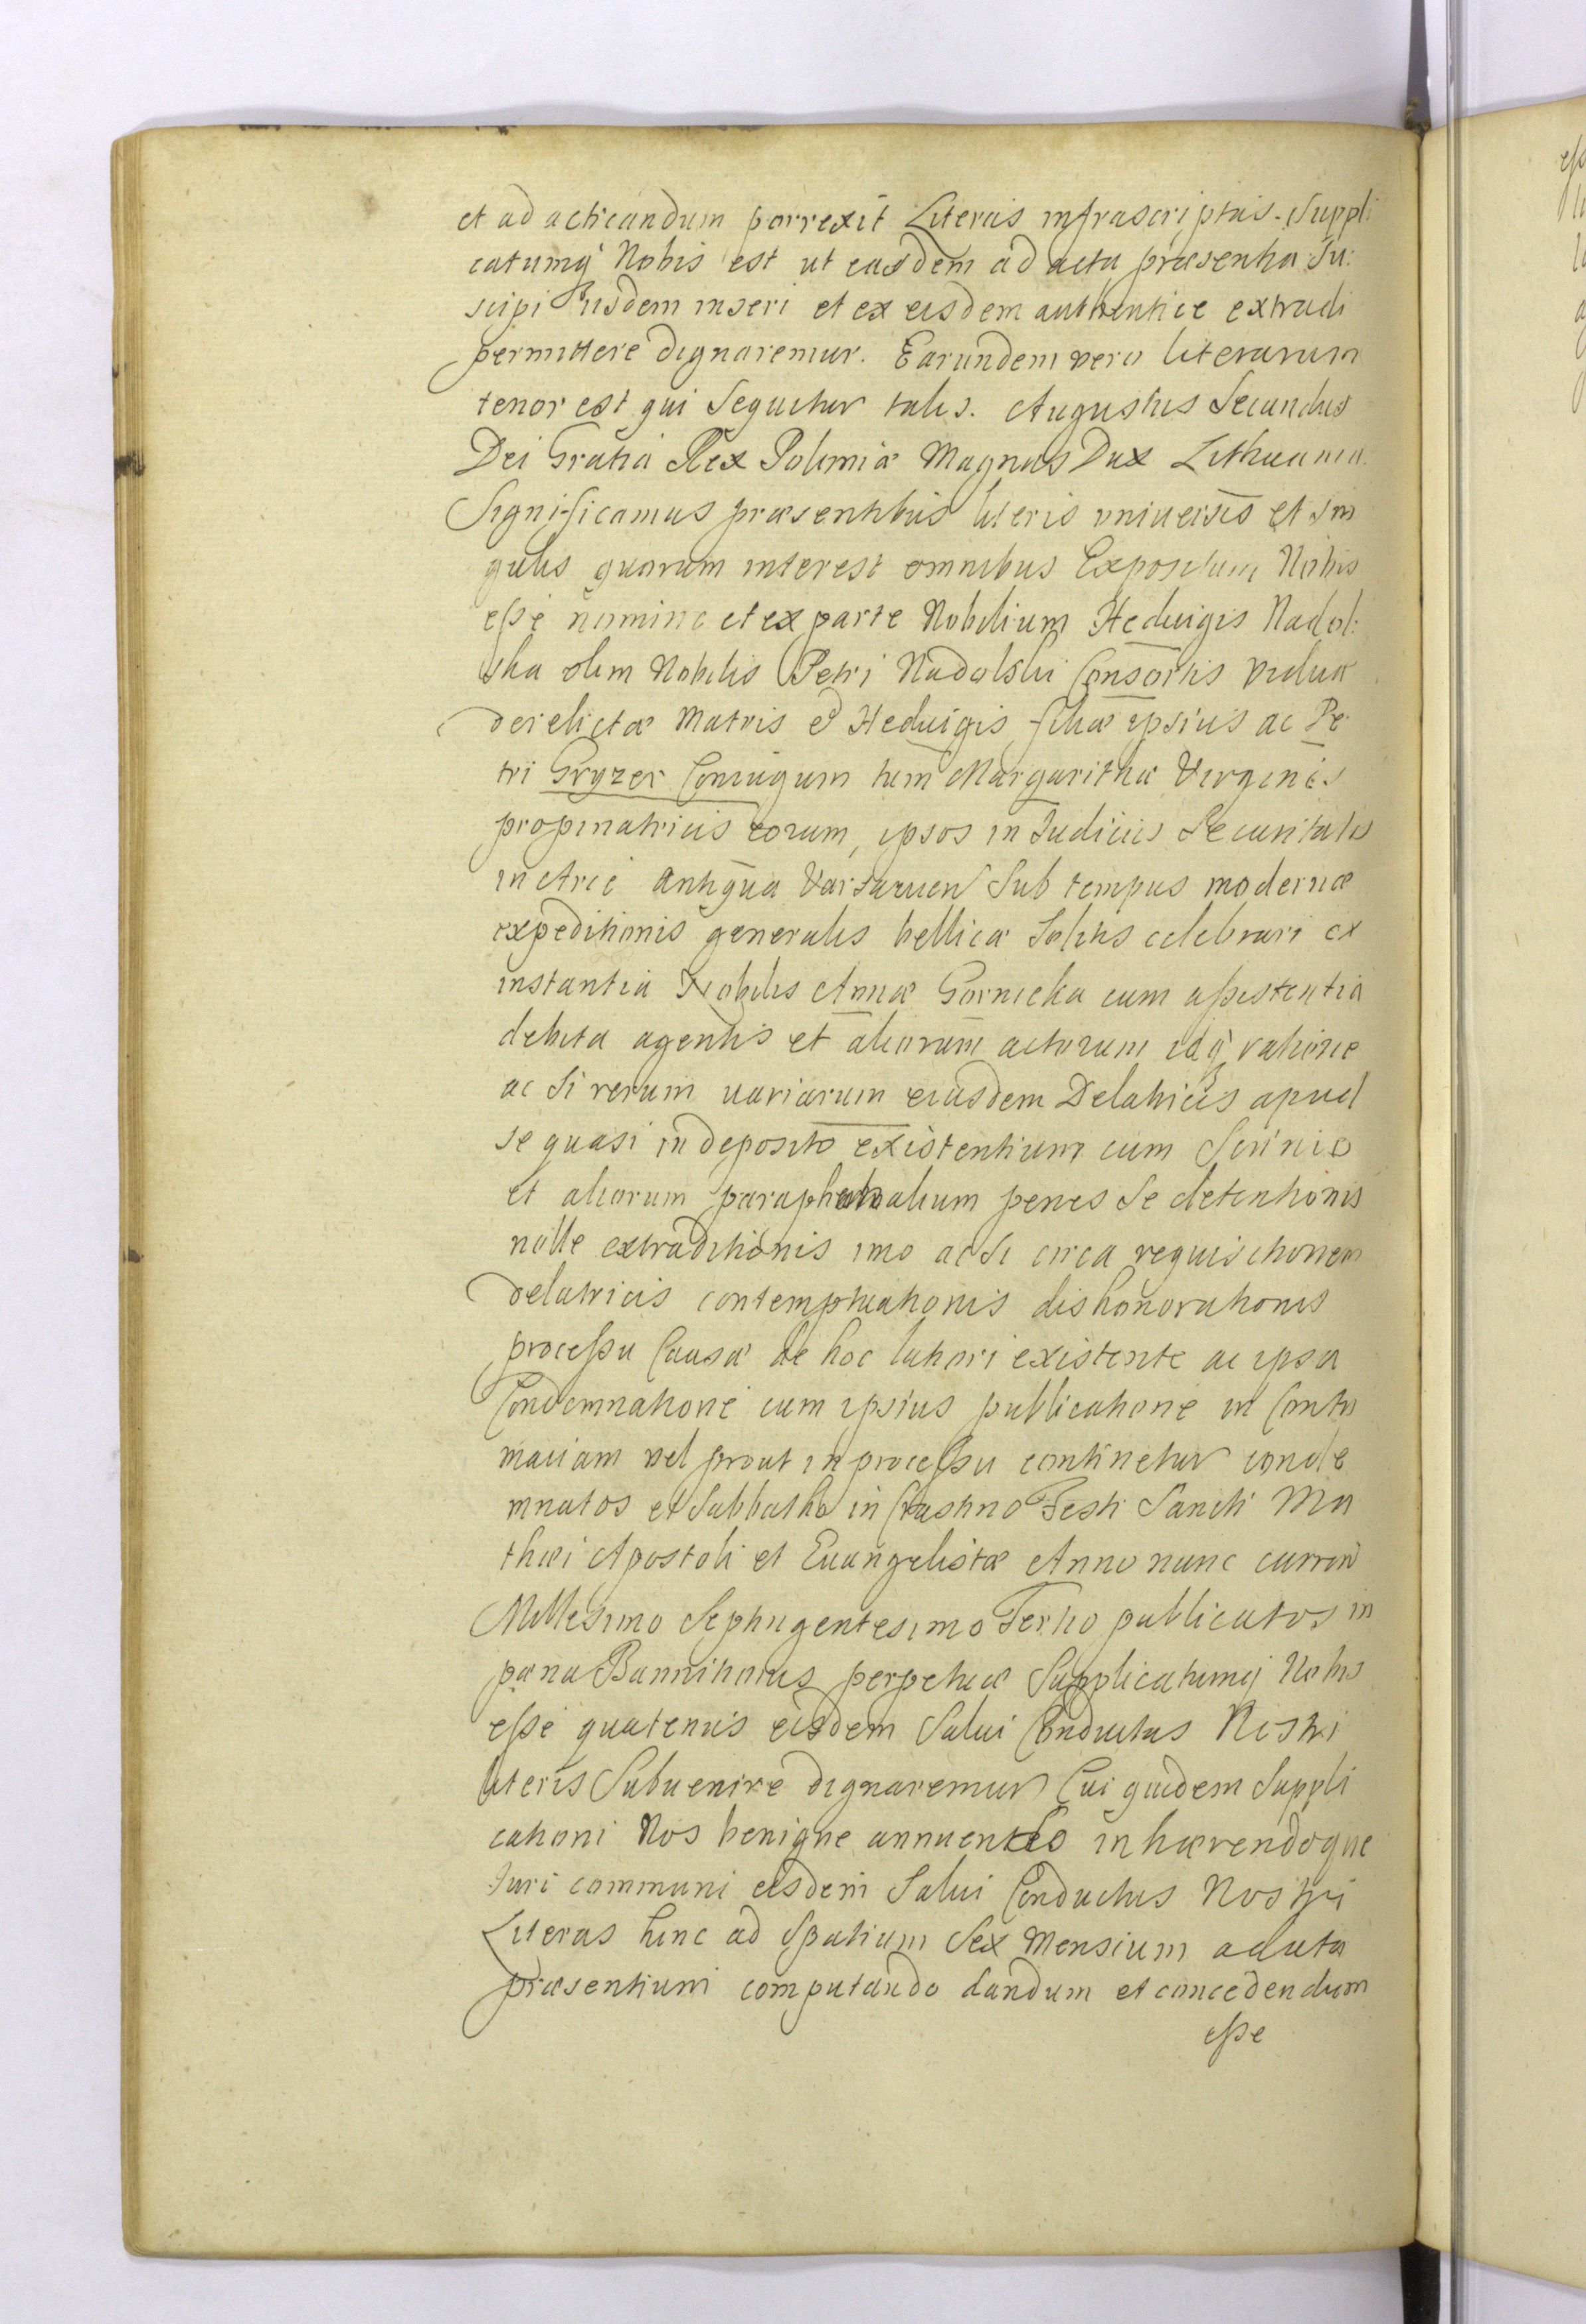 et ad acticandum porrexit Literas infrascriptas. Suppli
catumq́ Nobis est ut easdem ad acta præsentia Su:
scipi iisdem inseri et ex eisdem authentice extradi
permittere dignaremur. Earundem vero literarum
tenor est qui Sequitur talis. Augustus Secundus
Dei Gratia Rex Poloniæ Magnus Dux Lithuaniæ
Significamus præsentibus literis vniuersis et sin
gulis quorum interest omnibus Expositum Nobis
esse nomine et ex parte Nobilium Heduigis Nadol:
ska olim Nobilis Petri Nadolski Consortis viduæ
derelictæ Matris et Heduigis filiæ ipsius ac Pe
tri Gryzer Coniugum tum Margarithæ Virginis
propinatricis eorum, ipsos in Iudiciis Securitatis
in Arce Antiqua Varsauien Sub tempus modernæ
expeditionis generalis bellicæ Solitis celebrari ex
instantia Nobilis Annæ Gornicka cum assistentia
debita agentis et aliorum actorum idq́ ratione
ac si rerum uariarum eiusdem Delatricis apud
se quasi in deposito existentium cum Scrinio
et aliorum paraphernalium penes Se detentionis
nolle extraditionis imo ac Si circa requisitionem
delatricis contemptuationis dishonorationis
processu Causæ de hoc latiori existente ac ipsa
Condemnatione cum ipsius publicatione in Contu
maciam vel prout in processu continetur conde
mnatos et Sabbatho in Crastino Festi Sancti Ma
thæi Apostoli et Euangelistæ Anno nunc curren
Millesimo Septingentesimo Tertio publicatos in
pæna Bannitionis perpetuæ Supplicatumq́ Nobis
esse quatenus eisdem Salui Conductus Nostri
literis Subuenire dignaremur Cui quidem Suppli
cationi Nos benigne annuendo inhærendoque
Iuri communi eisdem Salui Conductus Nostri
Literas hinc ad Spatium Sex Mensium a data
præsentium computando dandum et concedendum
esse